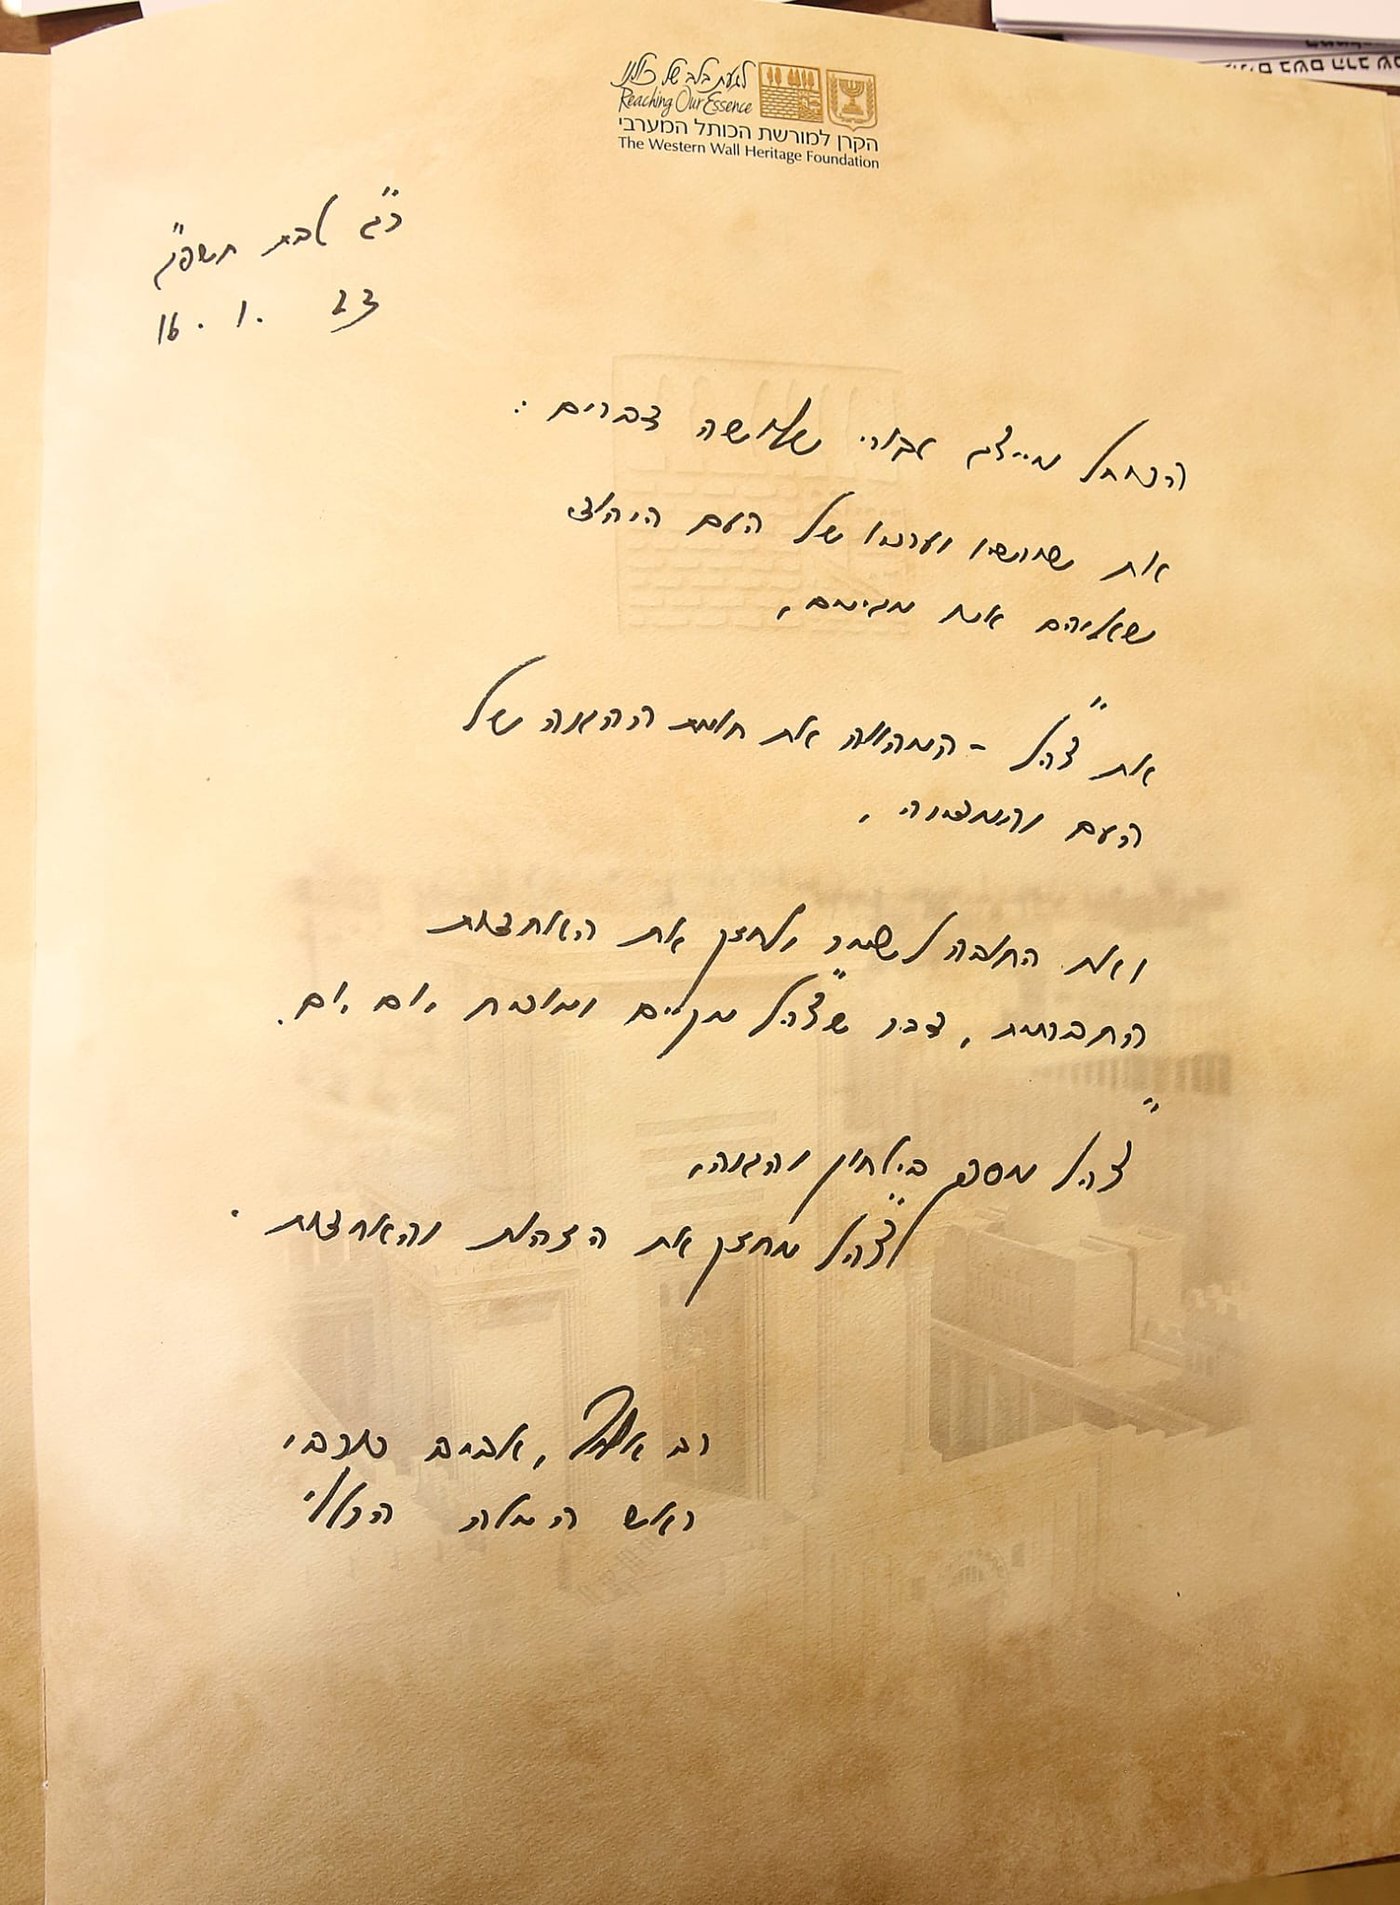 לגעת בלב של כולנו
Reaching Our Essence
הקרן למורשת הכותל המערבי
The Western Wall Heritage Foundation
כ"ג טבת תשפ"ג
16.1.23
הכותל מייצג עבורי שלושה דברים:
את שורשיו וערכיו של העם היהודי
שאליהם אנו מגיעים,
את צה"ל - המהווה את חומת ההגנה של
העם והמדינה,
ואת החובה לשמור ולחזק את האחדות
החברתית, דבר שצה"ל מקיים ומוכיח יום יום.
צה"ל מספק ביטחון והגנה,
צה"ל מחזק את הזהות והאחדות.
רב אלוף, אביב כוכבי
ראש המטה הכללי